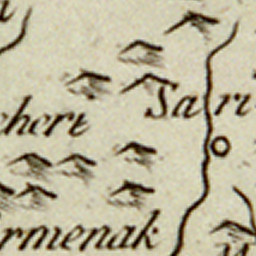 Sari
chert
rmenak